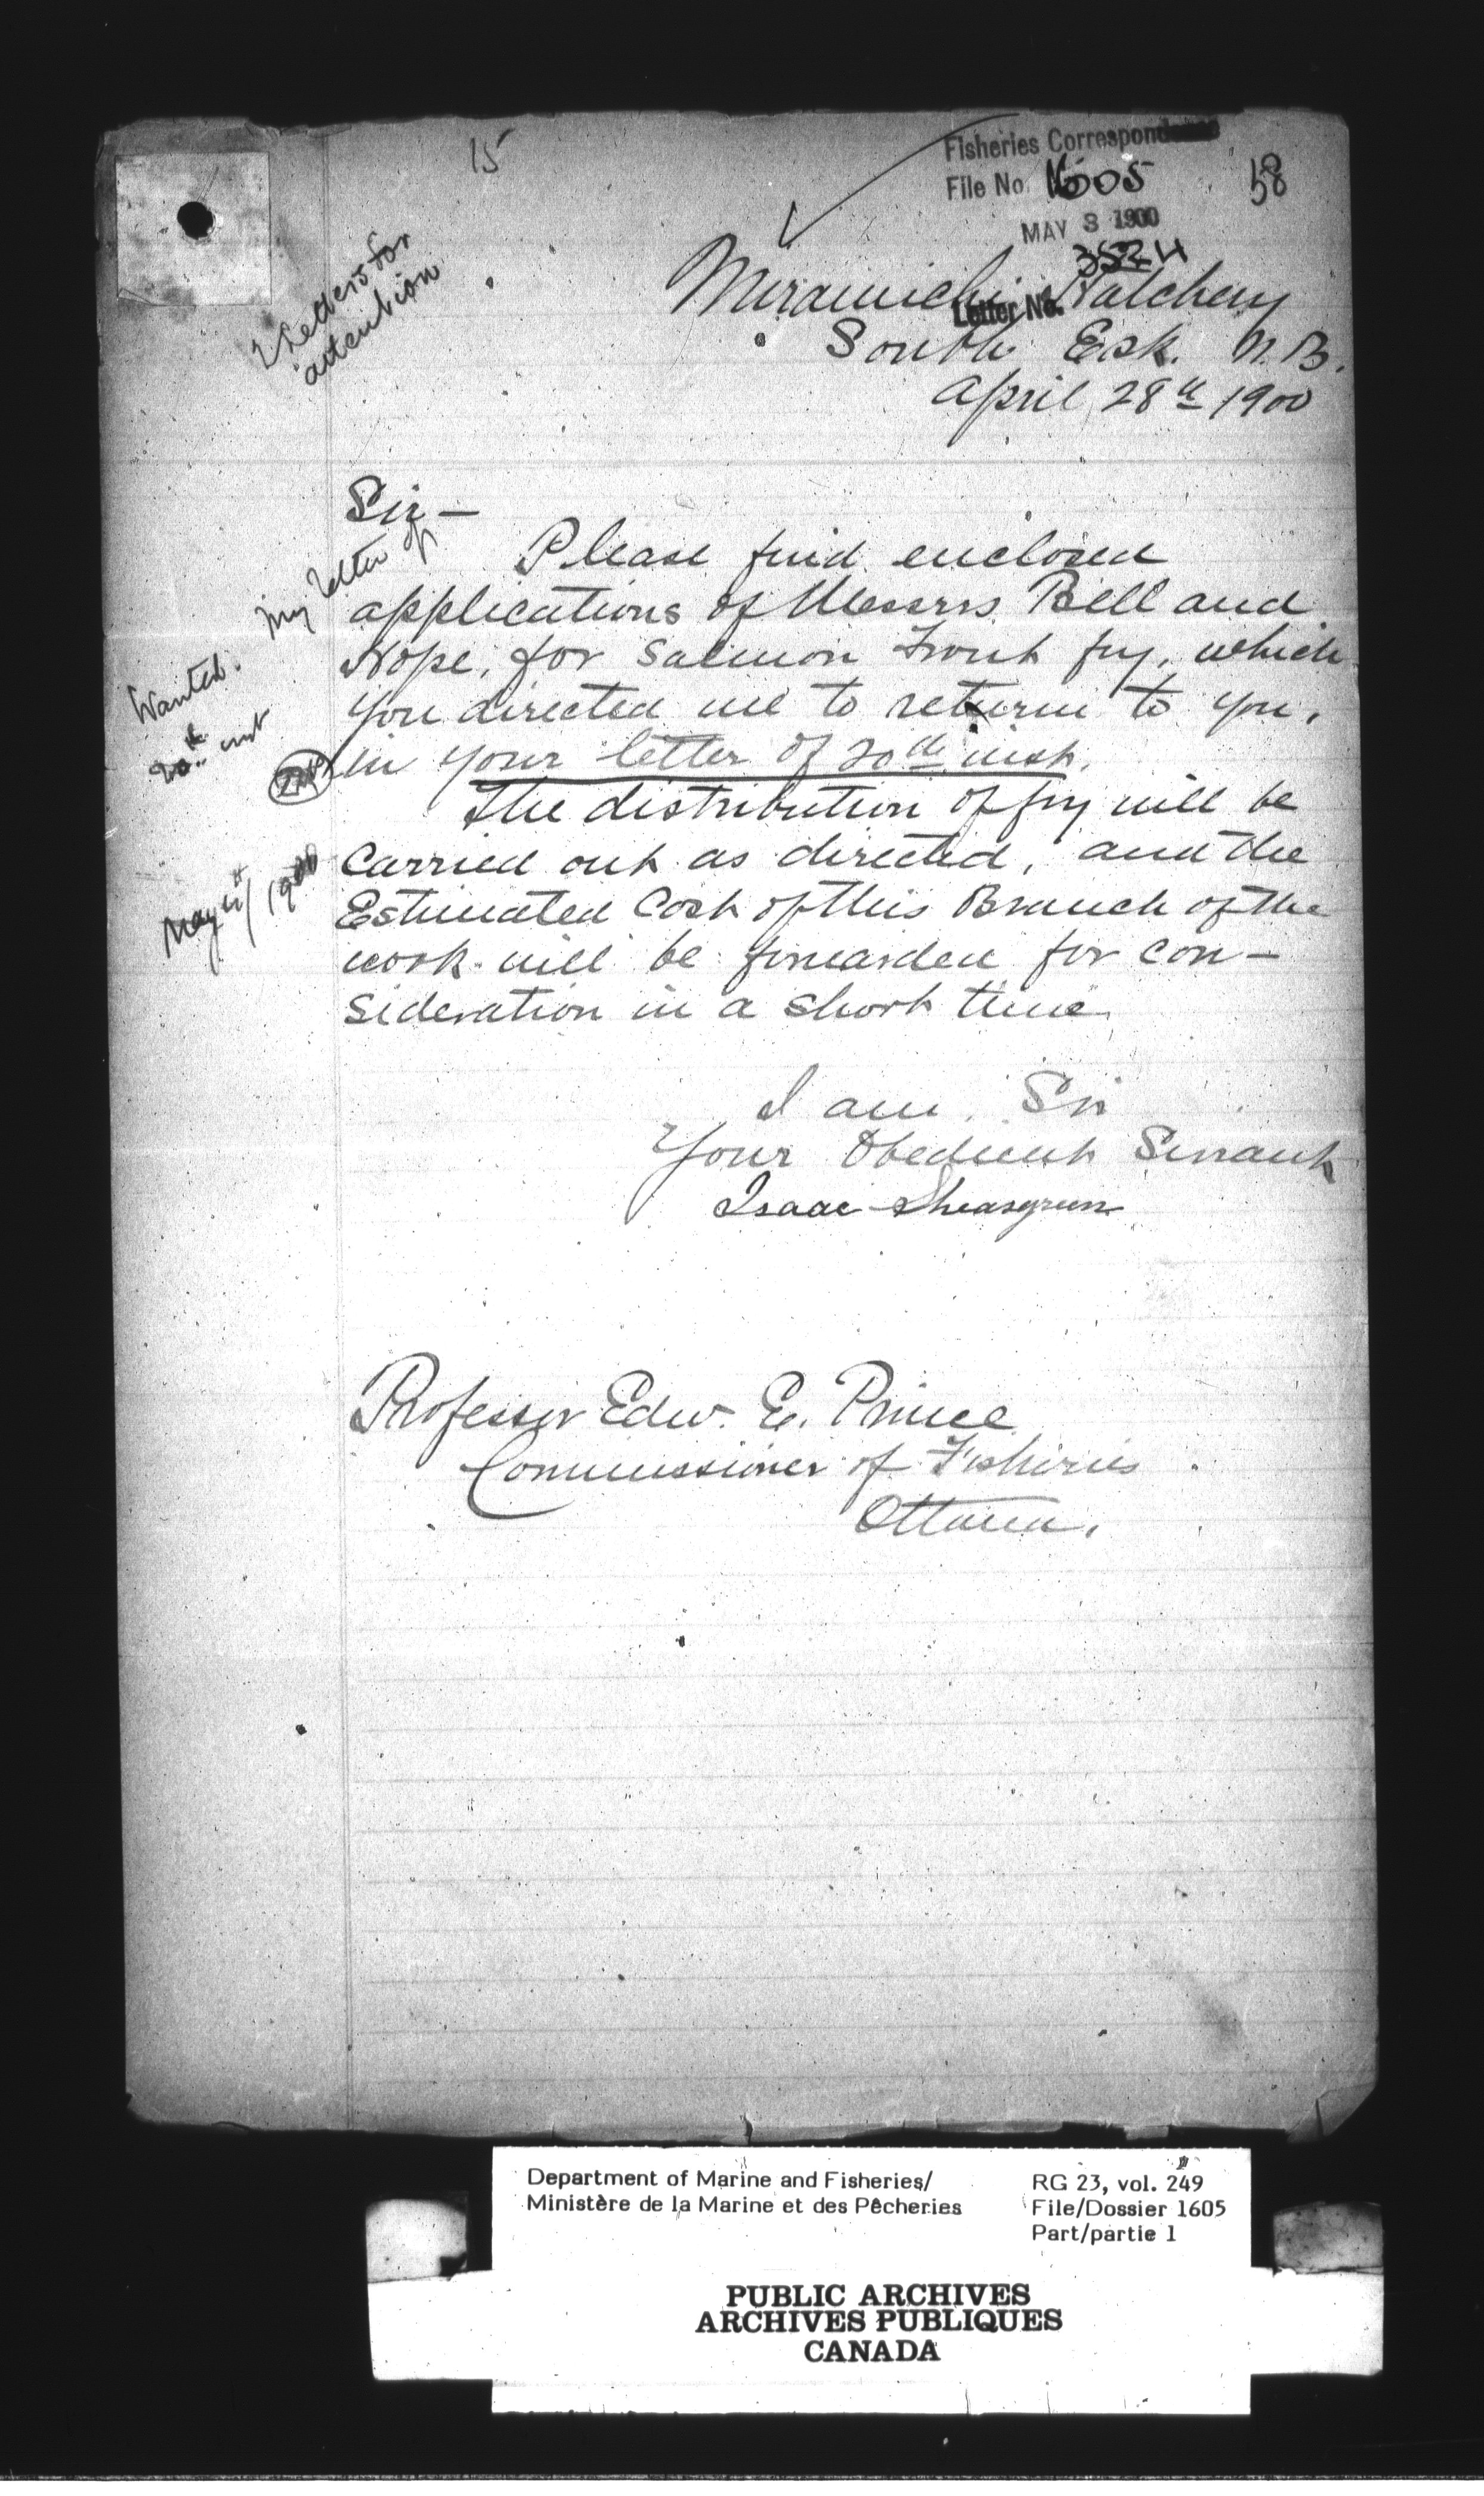 15
Fisheries Correspondence
File No. 1605
58
MAY 3 1900
3524
Letter No.
2 letters for
attention
Miramichi Hatchery
South Esk. N.B.
April 28th 1900
Sir —
Please find enclosed
applications of Messrs. Bell and
Hope, for Salmon Trout fry, which
you directed me to return to you,
in your letter of 20th inst.
The distribution of fry will be
carried out as directed, and the
Estimated Cost of this Branch of the
work will be forwarded for con-
sideration in a short time.
Wanted. My letter of
20th inst
May 4th/1900
I am, Sir
Your Obedient Servant
Isaac Sheasgreen
Professor Edw. E. Prince
Commissioner of Fisheries
Ottawa.
Department of Marine and Fisheries/
Ministère de la Marine et des Pêcheries
RG 23, vol. 249
File/Dossier 1605
Part/partie 1
PUBLIC ARCHIVES
ARCHIVES PUBLIQUES
CANADA